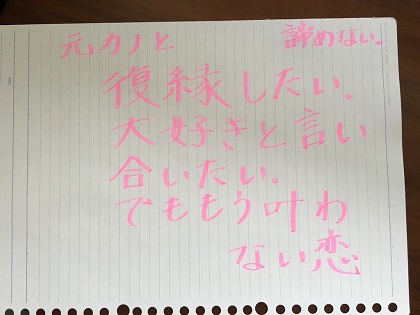 元カノと 諦めない。
復縁したい。
大好きと言い
合いたい。
でももう叶わ
ない恋